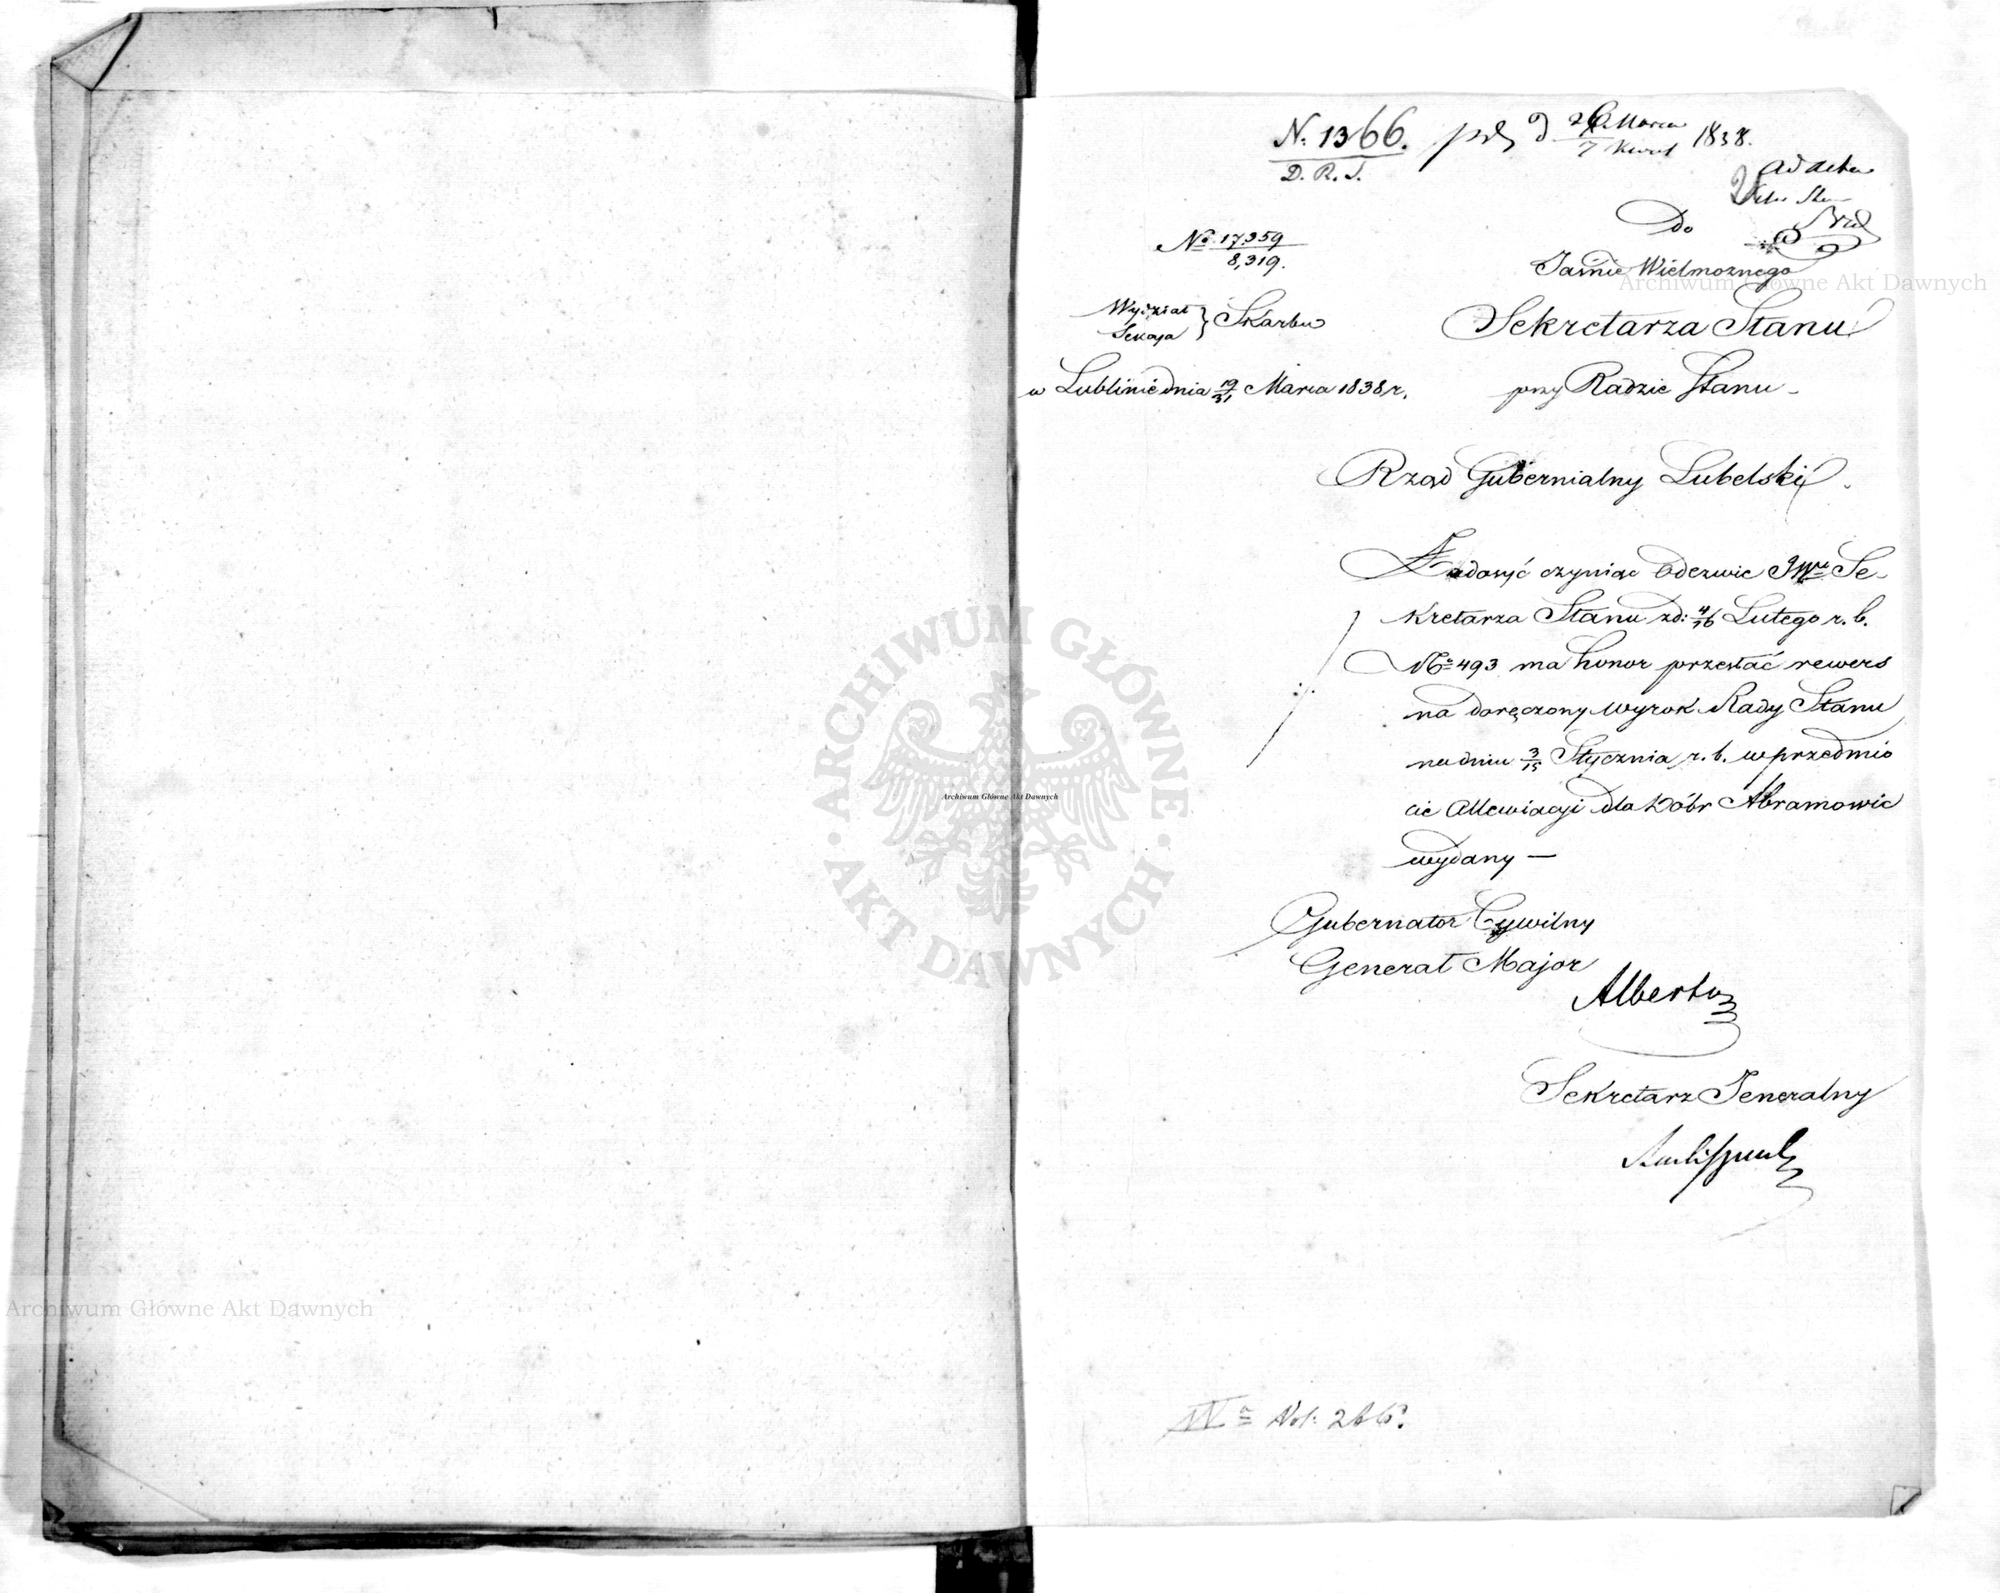 N. 1366.
D. R. S.
d 26 Marca 1838.
7 Kwiet
ad acta
No 17359
8,319.
Do
Jaśnie Wielmożnego
Wydział
Sekcya } Skarbu
Sekretarza Stanu
w Lublinie dnia 19/31 Marca 1838 r.
przy Radzie Stanu
Rząd Gubernialny Lubelski.
Zadosyć czyniąc Odezwie JW Se-
kretarza Stanu zd: 4/16 Lutego r. b.
No 493 ma honor przesłać rewers
na doręczony wyrok Rady Stanu
na dniu 3/15 Stycznia r. b. w przedmio
cie Allewiacyi dla Dóbr Abramowic
wydany —
Gubernator Cywilny
Generał Major
Albertow
Sekretarz Jeneralny
Vol: 266.
ARCHIWUM GŁÓWNE AKT DAWNYCH
Archiwum Główne Akt Dawnych
Archiwum Główne Akt Dawnych
Archiwum Główne Akt Dawnych